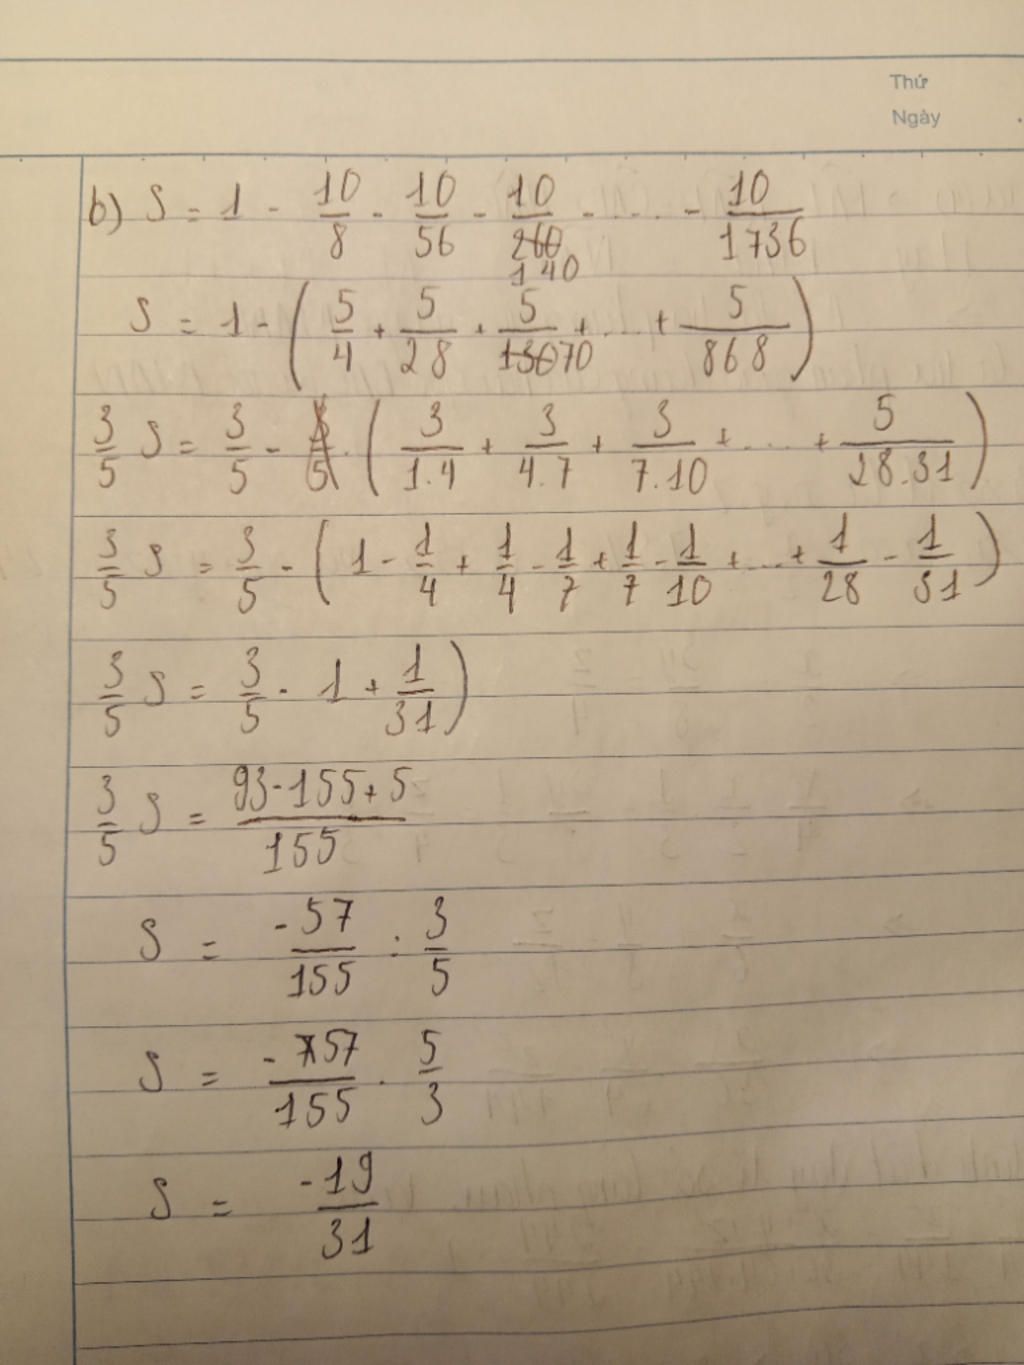 Thứ
Ngày
b) S = 1 - 10/8 - 10/56 - 10/140 - .... - 10/1736
S = 1 - ( 5/4 + 5/28 + 5/70 + ... + 5/868 )
3/5 S = 3/5 - ( 3/1.4 + 3/4.7 + 3/7.10 + ... + 5/28.31 )
3/5 S = 3/5 - ( 1 - 1/4 + 1/4 - 1/7 + 1/7 - 1/10 + ... + 1/28 - 1/31 )
3/5 S = 3/5 - 1 + 1/31 )
3/5 S = 93-155+5/155
S = -57/155 : 3/5
S = -57/155 . 5/3
S = -19/31